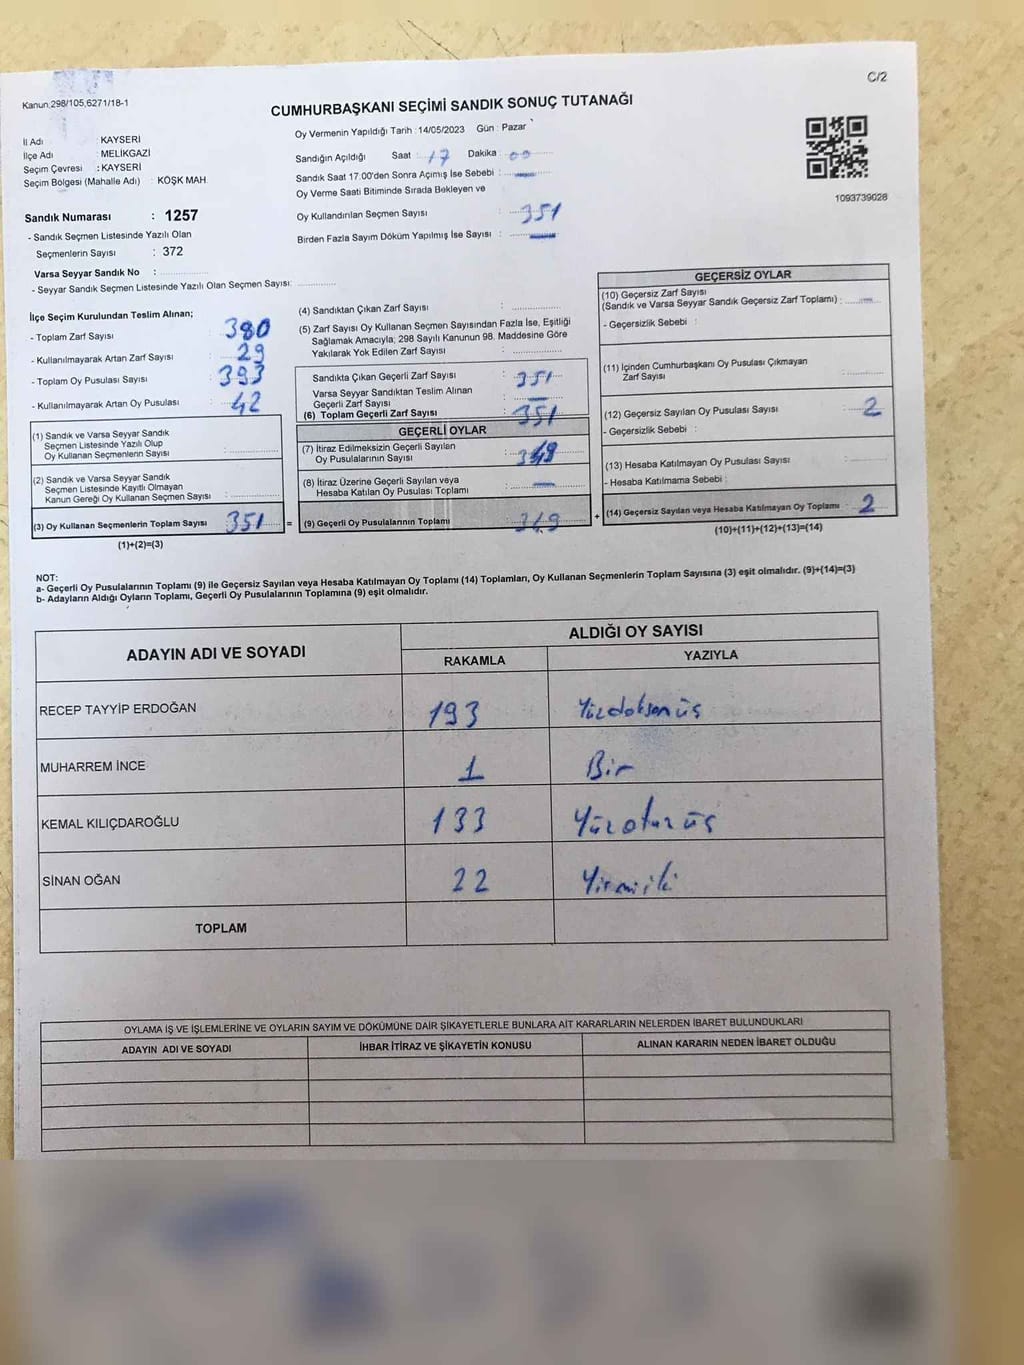 C/2
Kanun:298/105,6271/18-1
CUMHURBAŞKANI SEÇİMİ SANDIK SONUÇ TUTANAĞI
İl Adı : KAYSERİ
İlçe Adı : MELİKGAZİ
Seçim Çevresi : KAYSERİ
Seçim Bölgesi (Mahalle Adı) : KÖŞK MAH.
Oy Vermenin Yapıldığı Tarih : 14/05/2023 Gün : Pazar
Sandığın Açıldığı Saat : 17 Dakika : 00
Sandık Saat 17.00'den Sonra Açımış İse Sebebi : —
Oy Verme Saati Bitiminde Sırada Bekleyen ve
Oy Kullandırılan Seçmen Sayısı : 351
Birden Fazla Sayım Döküm Yapılmış İse Sayısı : —
1093739028
Sandık Numarası : 1257
- Sandık Seçmen Listesinde Yazılı Olan
Seçmenlerin Sayısı : 372
Varsa Seyyar Sandık No :
- Seyyar Sandık Seçmen Listesinde Yazılı Olan Seçmen Sayısı:
İlçe Seçim Kurulundan Teslim Alınan;
- Toplam Zarf Sayısı : 380
- Kullanılmayarak Artan Zarf Sayısı : 29
- Toplam Oy Pusulası Sayısı : 393
- Kullanılmayarak Artan Oy Pusulası : 42
(1) Sandık ve Varsa Seyyar Sandık
Seçmen Listesinde Yazılı Olup
Oy Kullanan Seçmenlerin Sayısı :
(2) Sandık ve Varsa Seyyar Sandık
Seçmen Listesinde Kayıtlı Olmayan
Kanun Gereği Oy Kullanan Seçmen Sayısı :
(3) Oy Kullanan Seçmenlerin Toplam Sayısı : 351 =
(1)+(2)=(3)
(4) Sandıktan Çıkan Zarf Sayısı :
(5) Zarf Sayısı Oy Kullanan Seçmen Sayısından Fazla İse, Eşitliği
Sağlamak Amacıyla; 298 Sayılı Kanunun 98. Maddesine Göre
Yakılarak Yok Edilen Zarf Sayısı :
Sandıkta Çıkan Geçerli Zarf Sayısı : 351
Varsa Seyyar Sandıktan Teslim Alınan
Geçerli Zarf Sayısı : —
(6) Toplam Geçerli Zarf Sayısı : 351
GEÇERLİ OYLAR
(7) İtiraz Edilmeksizin Geçerli Sayılan
Oy Pusulalarının Sayısı : 349
(8) İtiraz Üzerine Geçerli Sayılan veya
Hesaba Katılan Oy Pusulası Toplamı : —
(9) Geçerli Oy Pusulalarının Toplamı : 349 +
GEÇERSİZ OYLAR
(10) Geçersiz Zarf Sayısı
(Sandık ve Varsa Seyyar Sandık Geçersiz Zarf Toplamı) : —
- Geçersizlik Sebebi :
(11) İçinden Cumhurbaşkanı Oy Pusulası Çıkmayan
Zarf Sayısı :
(12) Geçersiz Sayılan Oy Pusulası Sayısı : 2
- Geçersizlik Sebebi :
(13) Hesaba Katılmayan Oy Pusulası Sayısı :
- Hesaba Katılmama Sebebi :
(14) Geçersiz Sayılan veya Hesaba Katılmayan Oy Toplamı : 2
(10)+(11)+(12)+(13)=(14)
NOT:
a- Geçerli Oy Pusulalarının Toplamı (9) ile Geçersiz Sayılan veya Hesaba Katılmayan Oy Toplamı (14) Toplamları, Oy Kullanan Seçmenlerin Toplam Sayısına (3) eşit olmalıdır. (9)+(14)=(3)
b- Adayların Aldığı Oyların Toplamı, Geçerli Oy Pusulalarının Toplamına (9) eşit olmalıdır.
ADAYIN ADI VE SOYADI
ALDIĞI OY SAYISI
RAKAMLA YAZIYLA
RECEP TAYYİP ERDOĞAN 193 Yüzdoksanüç
MUHARREM İNCE 1 Bir
KEMAL KILIÇDAROĞLU 133 Yüzotuzüç
SİNAN OĞAN 22 Yirmiiki
TOPLAM
OYLAMA İŞ VE İŞLEMLERİNE VE OYLARIN SAYIM VE DÖKÜMÜNE DAİR ŞİKAYETLERLE BUNLARA AİT KARARLARIN NELERDEN İBARET BULUNDUKLARI
ADAYIN ADI VE SOYADI İHBAR İTİRAZ VE ŞİKAYETİN KONUSU ALINAN KARARIN NEDEN İBARET OLDUĞU